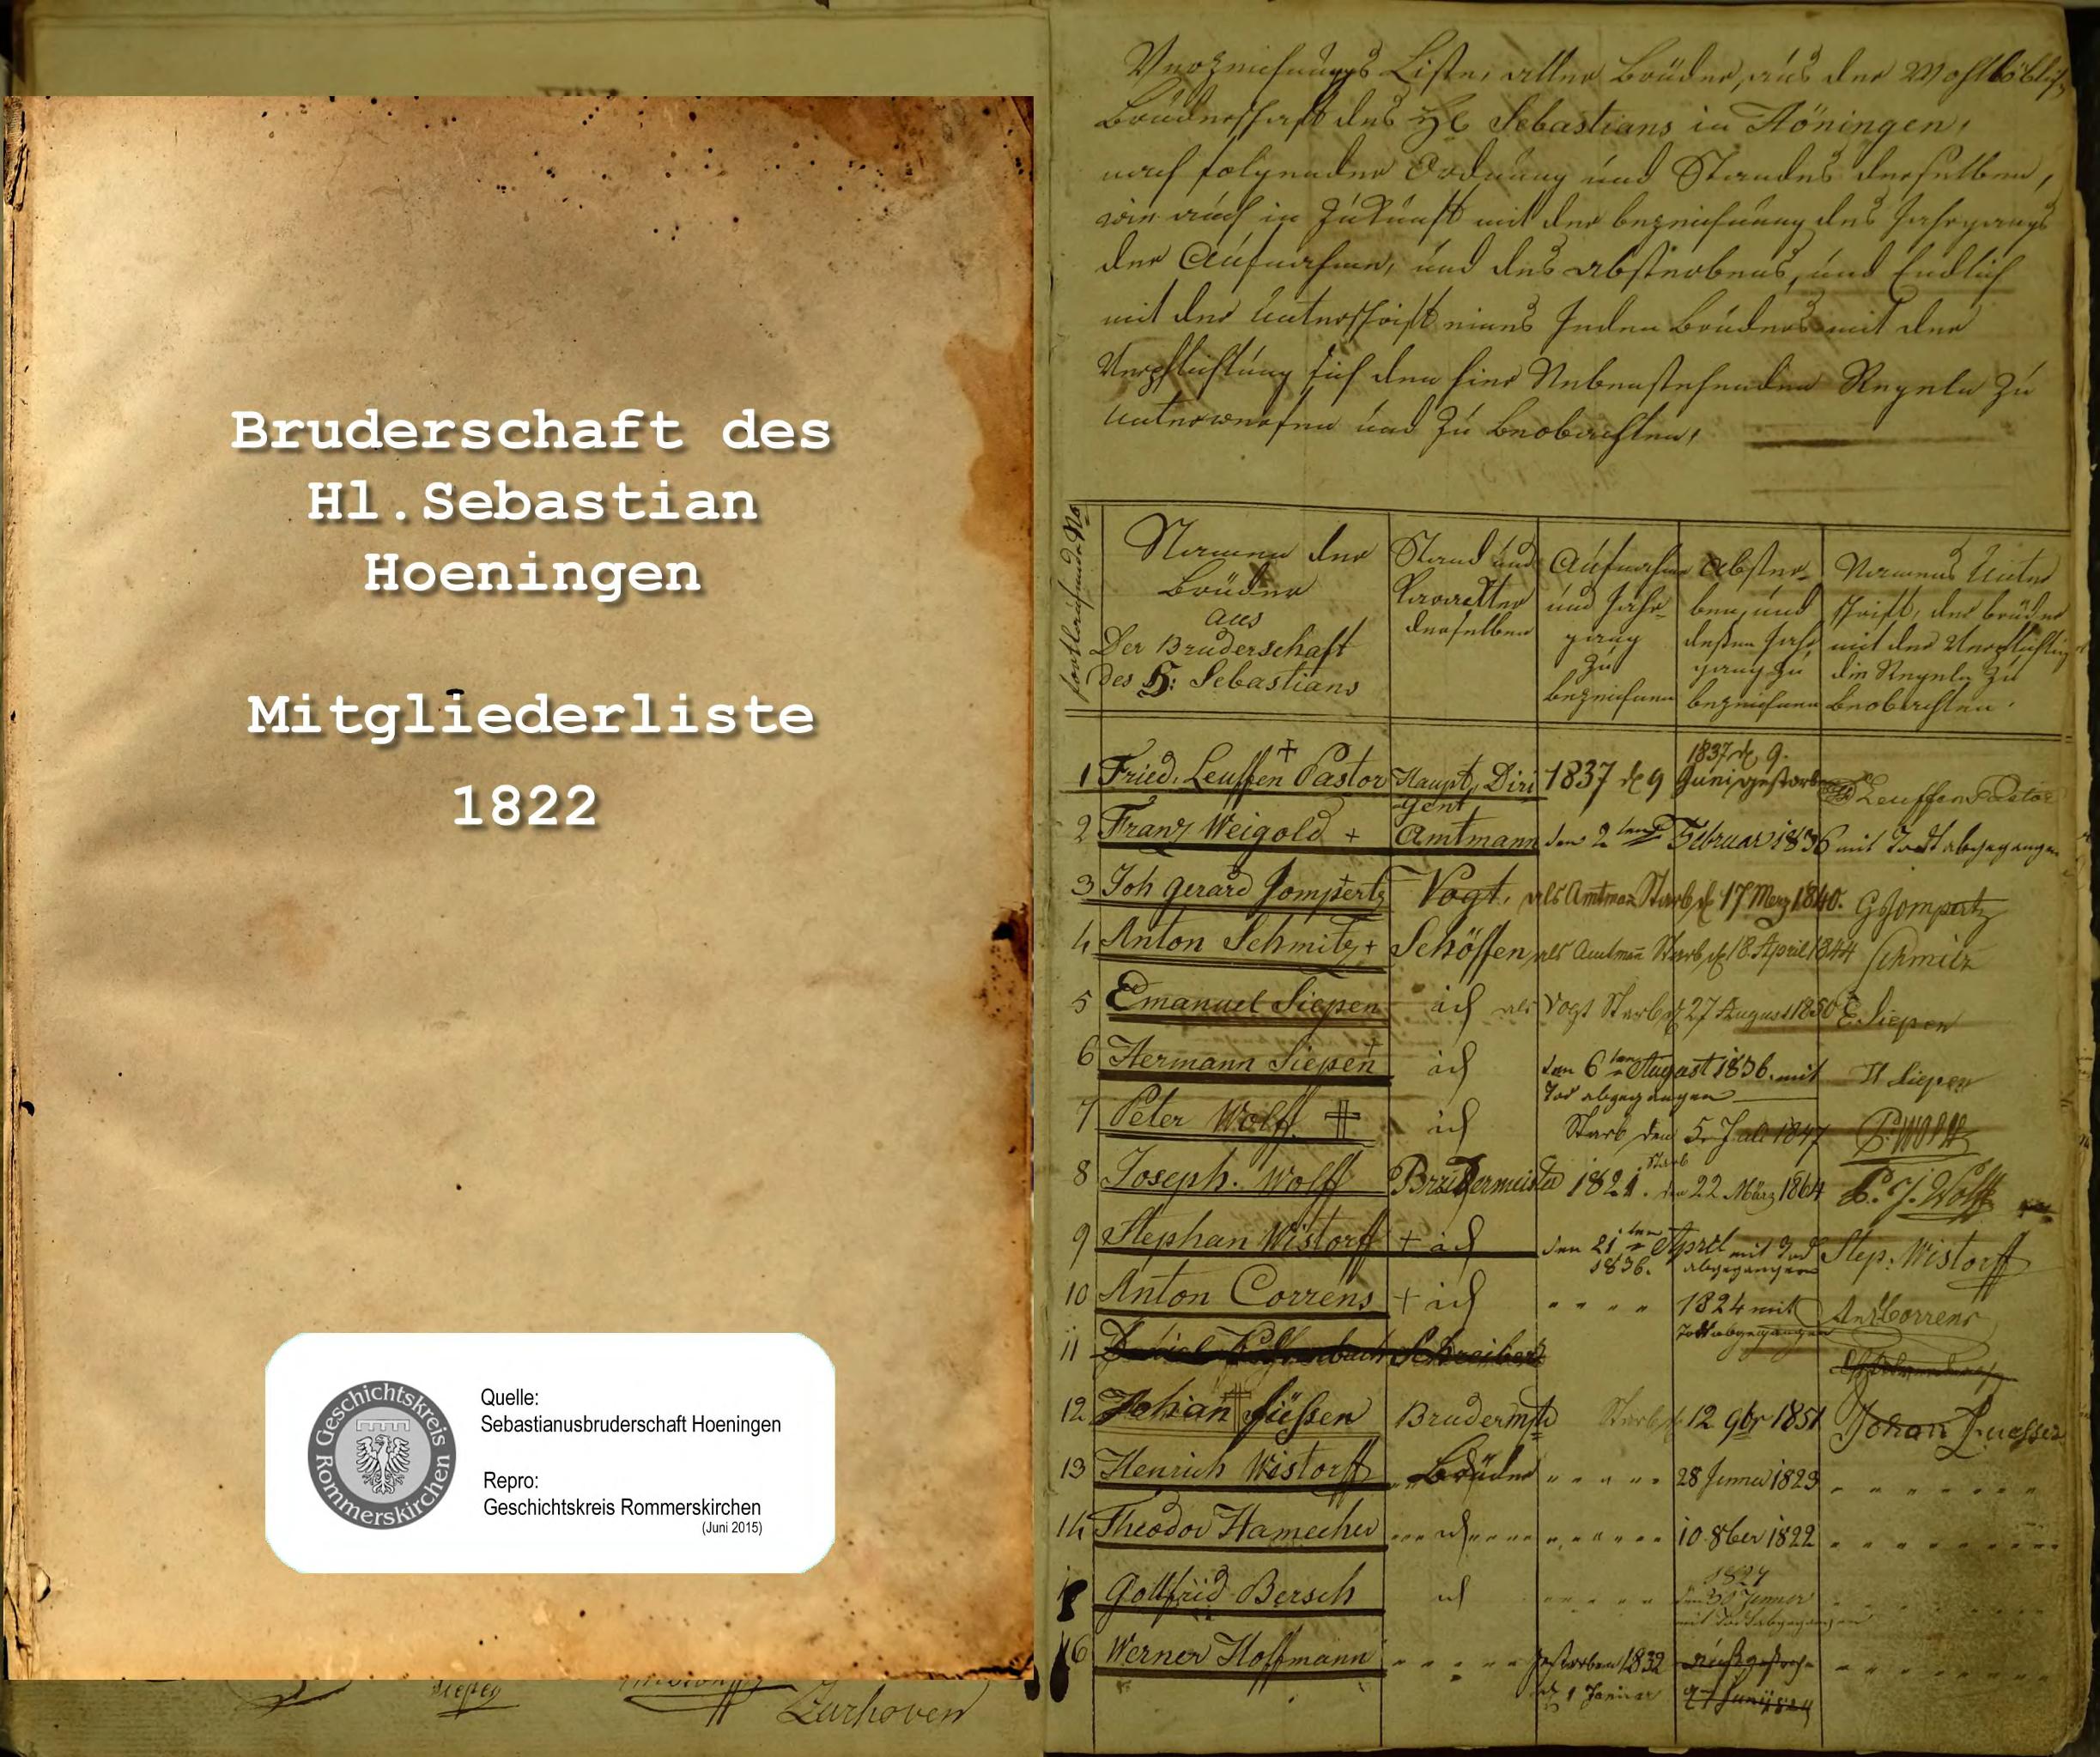 Bruderschaft des
Hl.Sebastian
Hoeningen
Mitgliederliste
1822
Geschichtskreis
Rommerskirchen
Quelle:
Sebastianusbruderschaft Hoeningen
Repro:
Geschichtskreis Rommerskirchen
(Juni 2015)
Zurhoven
Verzeichnungs Liste, aller Brüder, aus der Wohllöbl
Brüderschaft des Hl Sebastians in Höningen,
nach folgender Ordnung und Standes derselben,
wie auch in Zukunft mit der bezeichnung des Jahrgangs
der Aufnahme, und des absterbens, und Endlich
mit der Unterschrift eines Jeden Brüders mit der
Verpflichtung sich den hier Nebenstehenden Regeln zu
unterwerfen und zu beobachten,
fortlaufende No
Namen der
Brüder
aus
Der Bruderschaft
des H: Sebastians
Stand und
Karackter
derselben
Aufnahm
und Jahr-
gang
zu
bezeichnen
Abster-
ben, und
deßen Jahr
gang zu
bezeichnen
Namens Unter
schrift, der brüder
mit der
die Regeln zu
beobachten.
1 Fried. Leuffen Pastor Haupt, Diri 1837 d 9 1837 d 9.
gent Juni gestorben Leuffen Pastor
2 Franz Weigold + Amtmann den 2ten Februar 1836 mit Todt abgegangen
3 Joh Gerard Jompertz Vogt. als Amtman Starb d 17 Merz 1840. G Jompertz
4 Anton Schmitz + Schöffen als Amtman Starb d 18. April 1844 Schmitz
5 Emanuel Siepen als Vogt Starb d 27 August 1850 E Siepen
6 Hermann Siepen den 6ten August 1836. mit H Siepen
Tod abgegangen
7 Peter Wolff. Starb den 5. Juli 1847 P. Wolff
8 Joseph. Wolff Brudermeister 1821. Starb den 22 März 1864 P. J. Wolff
9 Stephan Wistorff + den 21ten April mit Tod Step: Wistorff
1836. abgegangen
10 Anton Correns + " " " " 1824 mit Ant Correns
Todt abgegangen
11 Schreiber
12 Johan Süßen Bruderm Starb d 12 9br 1851 Johan
13 Henrich Wistorff Brüder " " " " " 28 Jenner 1823
14 Theodor Hamecher 10 8ber 1822
Gottfrid Bersch 1824
den 30 Jenner
mit Tod abgegangen
16 Werner Hoffmann gestorben 1832
d 1 Januar